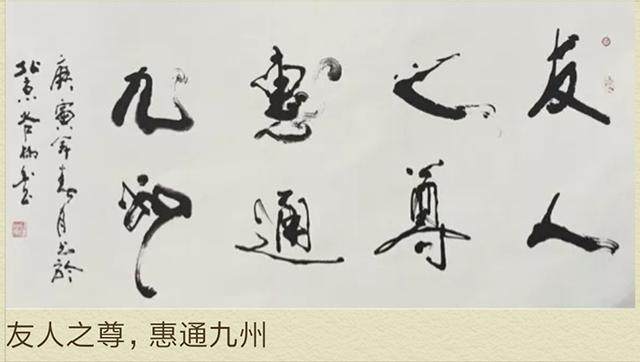 友人
之尊
惠通
九州
庚寅年春月书於
北京
友人之尊，惠通九州